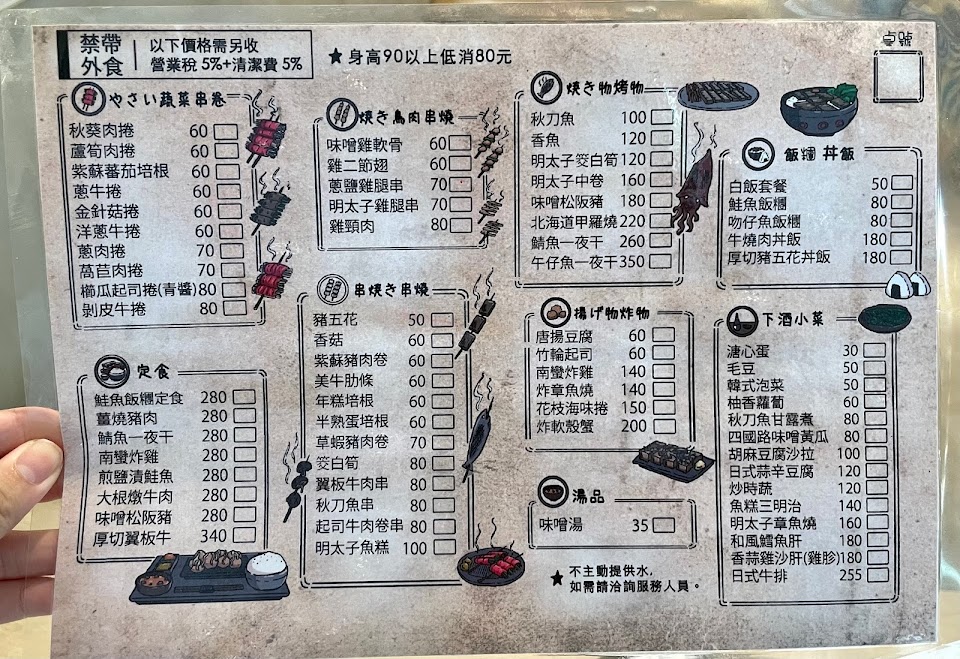 禁帶
外食
以下價格需另收
營業稅 5%+清潔費 5%
★身高90以上低消80元
桌號
やさい蔬菜串卷
秋葵肉捲 60
蘆筍肉捲 60
紫蘇蕃茄培根 60
蔥牛捲 60
金針菇捲 60
洋蔥牛捲 60
蔥肉捲 70
萵苣肉捲 70
櫛瓜起司捲(青醬)80
剝皮牛捲 80
定食
鮭魚飯糰定食 280
薑燒豬肉 280
鯖魚一夜干 280
南蠻炸雞 280
煎鹽漬鮭魚 280
大根燉牛肉 280
味噌松阪豬 280
厚切翼板牛 340
焼き鳥肉串燒
味噌雞軟骨 60
雞二節翅 60
蔥鹽雞腿串 70
明太子雞腿串 70
雞頸肉 80
串焼き串燒
豬五花 50
香菇 60
紫蘇豬肉卷 60
美牛肋條 60
年糕培根 60
半熟蛋培根 60
草蝦豬肉卷 70
筊白筍 80
翼板牛肉串 80
秋刀魚串 80
起司牛肉卷串 80
明太子魚糕 100
焼き物烤物
秋刀魚 100
香魚 120
明太子筊白筍 120
明太子中卷 160
味噌松阪豬 180
北海道甲羅燒 220
鯖魚一夜干 260
午仔魚一夜干350
揚げ物炸物
唐揚豆腐 60
竹輪起司 60
南蠻炸雞 140
炸章魚燒 140
花枝海味捲 150
炸軟殼蟹 200
湯品
味噌湯 35
★不主動提供水,
如需請洽詢服務人員。
飯糰 丼飯
白飯套餐 50
鮭魚飯糰 80
吻仔魚飯糰 80
牛燒肉丼飯 180
厚切豬五花丼飯 180
下酒小菜
溏心蛋 30
毛豆 50
韓式泡菜 50
柚香蘿蔔 60
秋刀魚甘露煮 80
四國路味噌黃瓜 80
胡麻豆腐沙拉 100
日式蒜辛豆腐 120
炒時蔬 120
魚糕三明治 140
明太子章魚燒 160
和風鱈魚肝 180
香蒜雞沙肝(雞胗)180
日式牛排 255